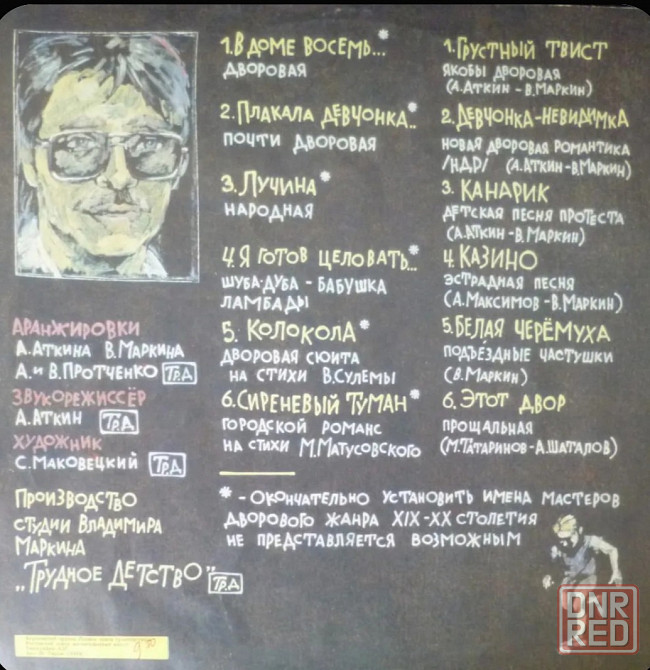 1. В ДОМЕ ВОСЕМЬ...*
ДВОРОВАЯ
2. ПЛАКАЛА ДЕВЧОНКА..*
ПОЧТИ ДВОРОВАЯ
3. ЛУЧИНА*
НАРОДНАЯ
4. Я ГОТОВ ЦЕЛОВАТЬ...*
ШУБА-ДУБА - БАБУШКА
ЛАМБАДЫ
5. КОЛОКОЛА*
ДВОРОВАЯ СЮИТА
НА СТИХИ В.СУЛЕМЫ
6. СИРЕНЕВЫЙ ТУМАН*
ГОРОДСКОЙ РОМАНС
НА СТИХИ М.МАТУСОВСКОГО
1. ГРУСТНЫЙ ТВИСТ
ЯКОБЫ ДВОРОВАЯ
(А.АТКИН - В.МАРКИН)
2. ДЕВЧОНКА-НЕВИДИМКА
НОВАЯ ДВОРОВАЯ РОМАНТИКА
/НДР/ (А.АТКИН - В.МАРКИН)
3. КАНАРИК
ДЕТСКАЯ ПЕСНЯ ПРОТЕСТА
(А.АТКИН - В.МАРКИН)
4. КАЗИНО
ЭСТРАДНАЯ ПЕСНЯ
(А.МАКСИМОВ - В.МАРКИН)
5. БЕЛАЯ ЧЕРЁМУХА
ПОДЪЕЗДНЫЕ ЧАСТУШКИ
(В.МАРКИН)
6. ЭТОТ ДВОР
ПРОЩАЛЬНАЯ
(М.ТАТАРИНОВ - А.ШАТАЛОВ)
АРАНЖИРОВКИ
А.АТКИНА В.МАРКИНА
А. И В.ПРОТЧЕНКО ТР.Д
ЗВУКОРЕЖИССЁР
А.АТКИН ТР.Д
ХУДОЖНИК
С.МАКОВЕЦКИЙ ТР.Д
ПРОИЗВОДСТВО
СТУДИИ ВЛАДИМИРА
МАРКИНА
„ТРУДНОЕ ДЕТСТВО" ТР.Д
* - ОКОНЧАТЕЛЬНО УСТАНОВИТЬ ИМЕНА МАСТЕРОВ
ДВОРОВОГО ЖАНРА XIX-XX СТОЛЕТИЯ
НЕ ПРЕДСТАВЛЯЕТСЯ ВОЗМОЖНЫМ
DNR
RED